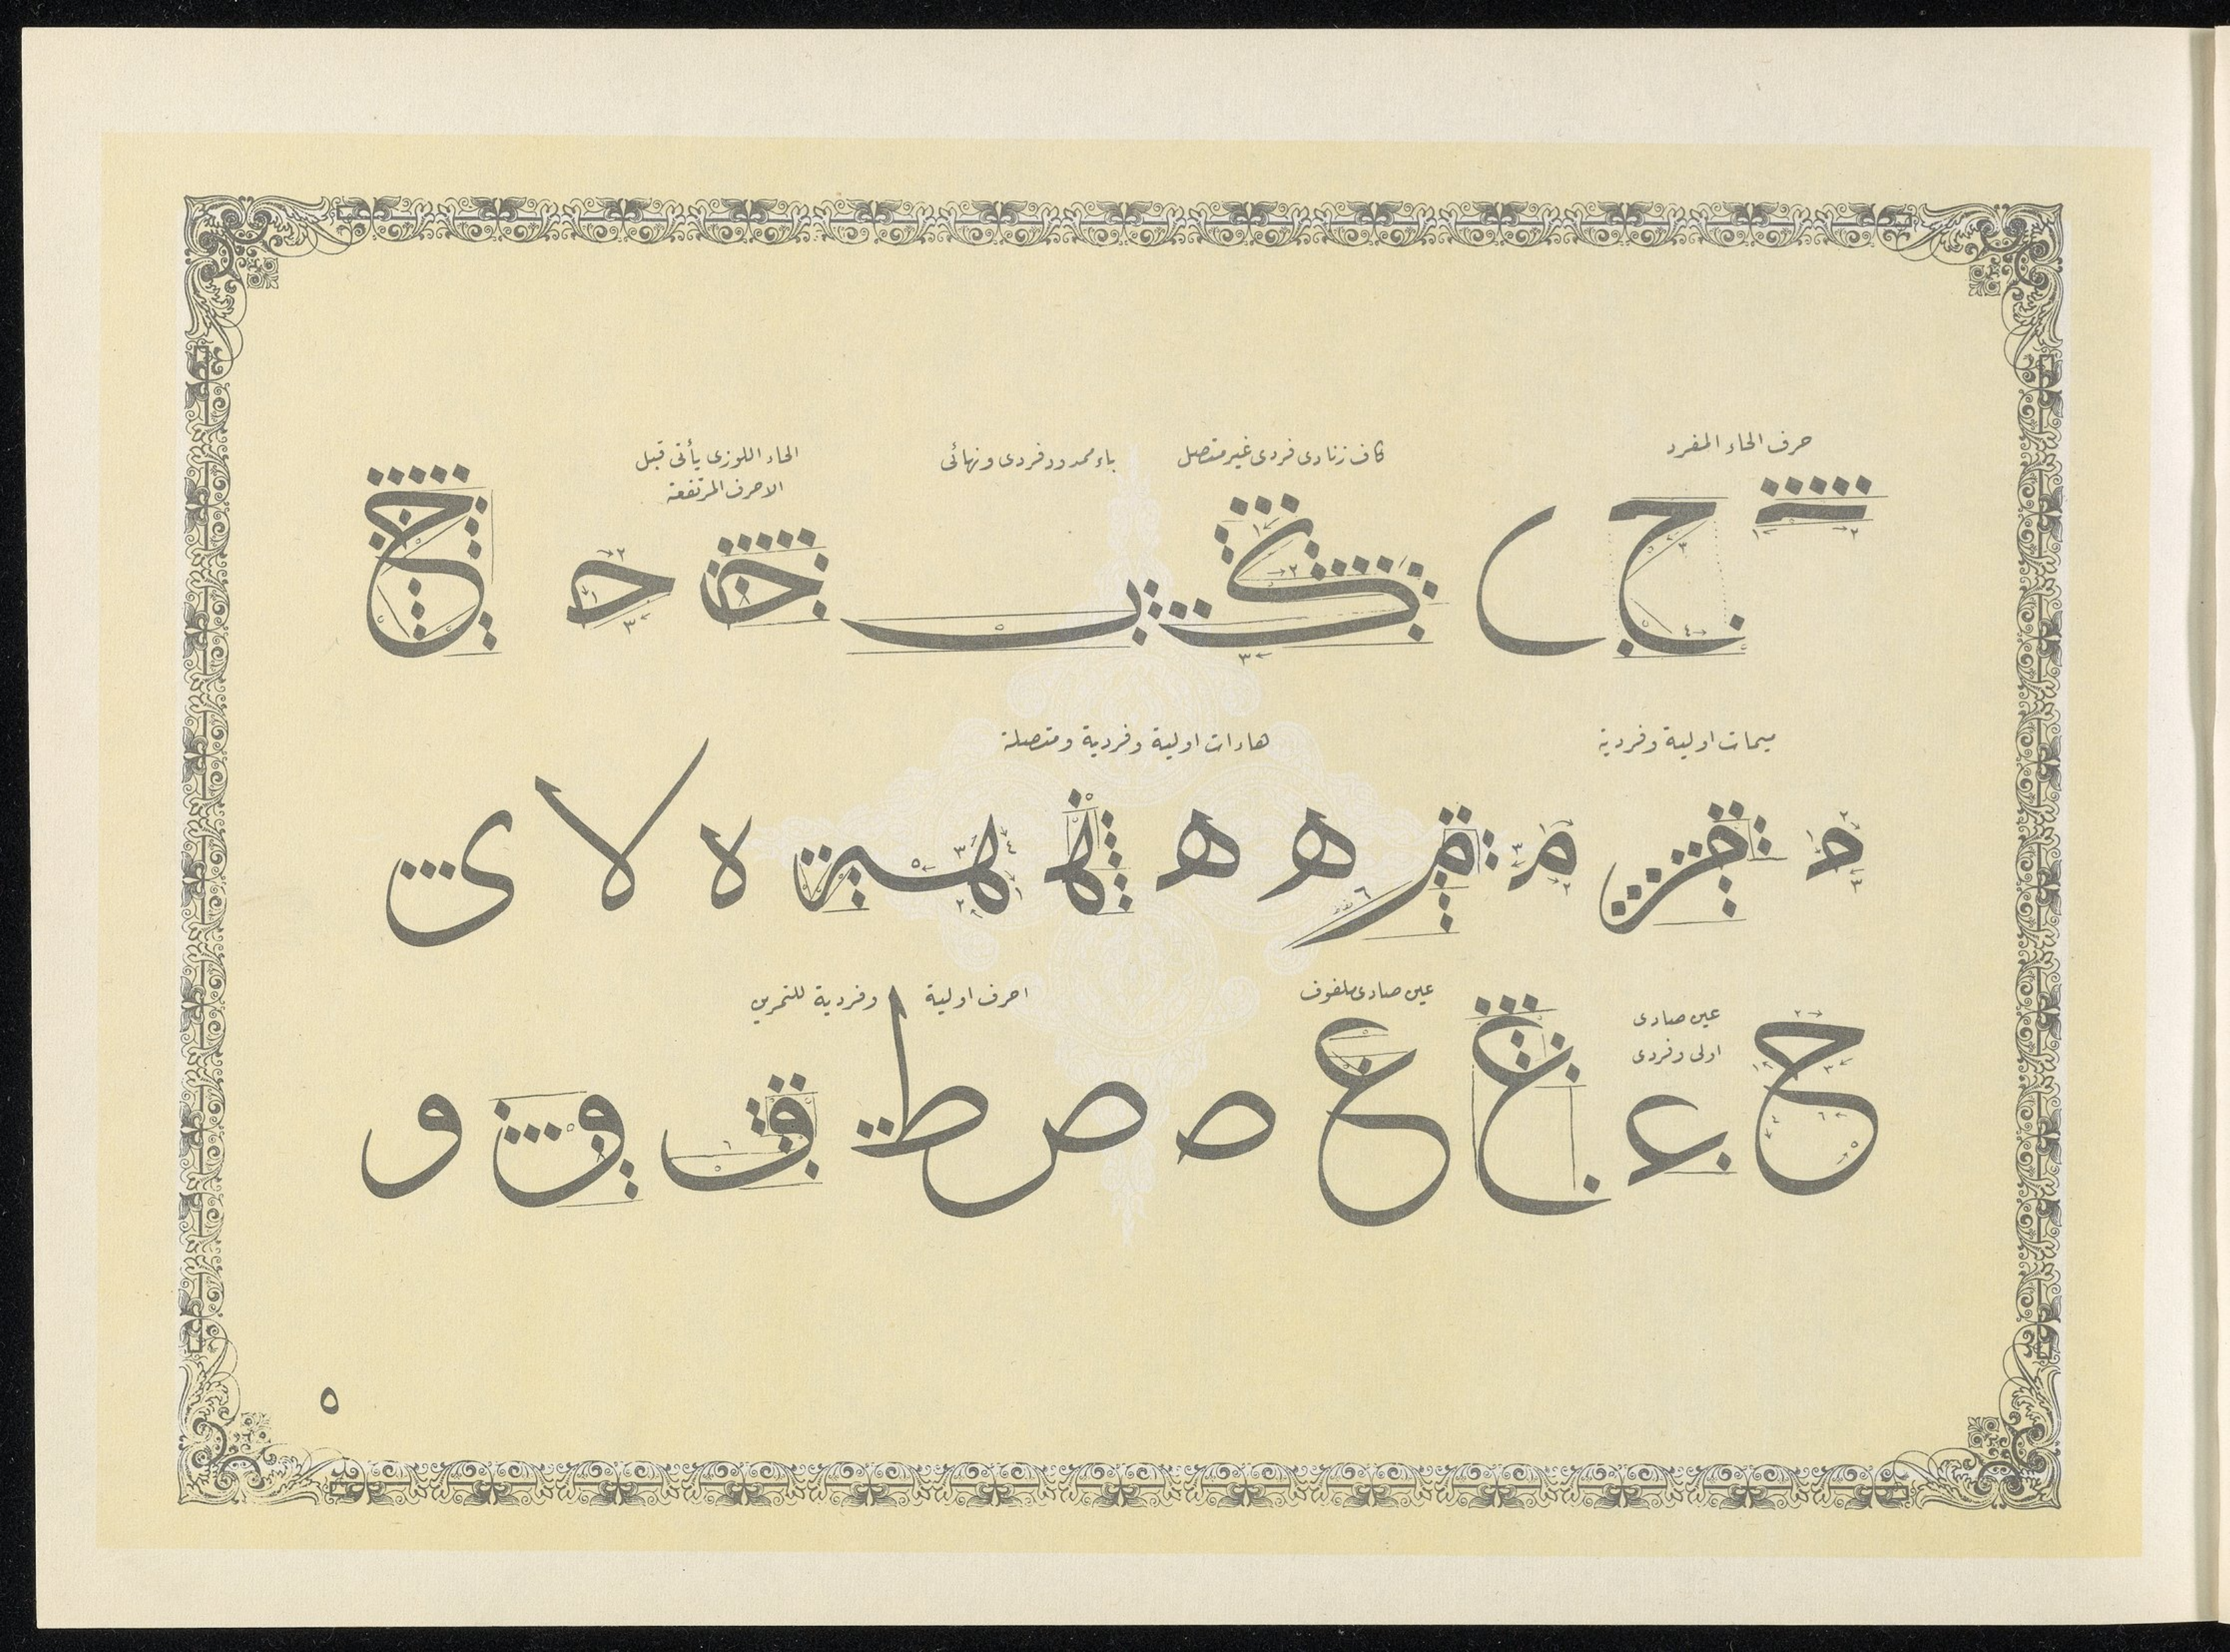 حرف الحاء المفرد
كاف زنادى فردى غير متصل
باء ممدود فردى ونهائى
الحاء اللوزى يأتى قبل
الاحرف المرتفعة
ح ك ب ح ح
ميمات اولية وفردية
هاءات اولية وفردية ومتصلة
م م م م ه ه ه لا ى
عين صادى
اولى وفردى
عين صادى ملفوف
احرف اولية وفردية للتمرين
ح ع ع ع ص ص ط ف و و
٥